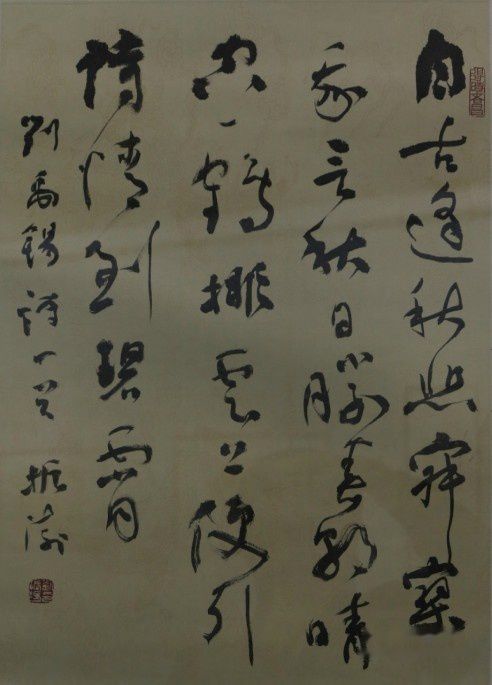 自古逢秋悲寂寥
我言秋日勝春朝晴
空一鶴排云上便引
詩情到碧霄
劉禹錫詩一首 振